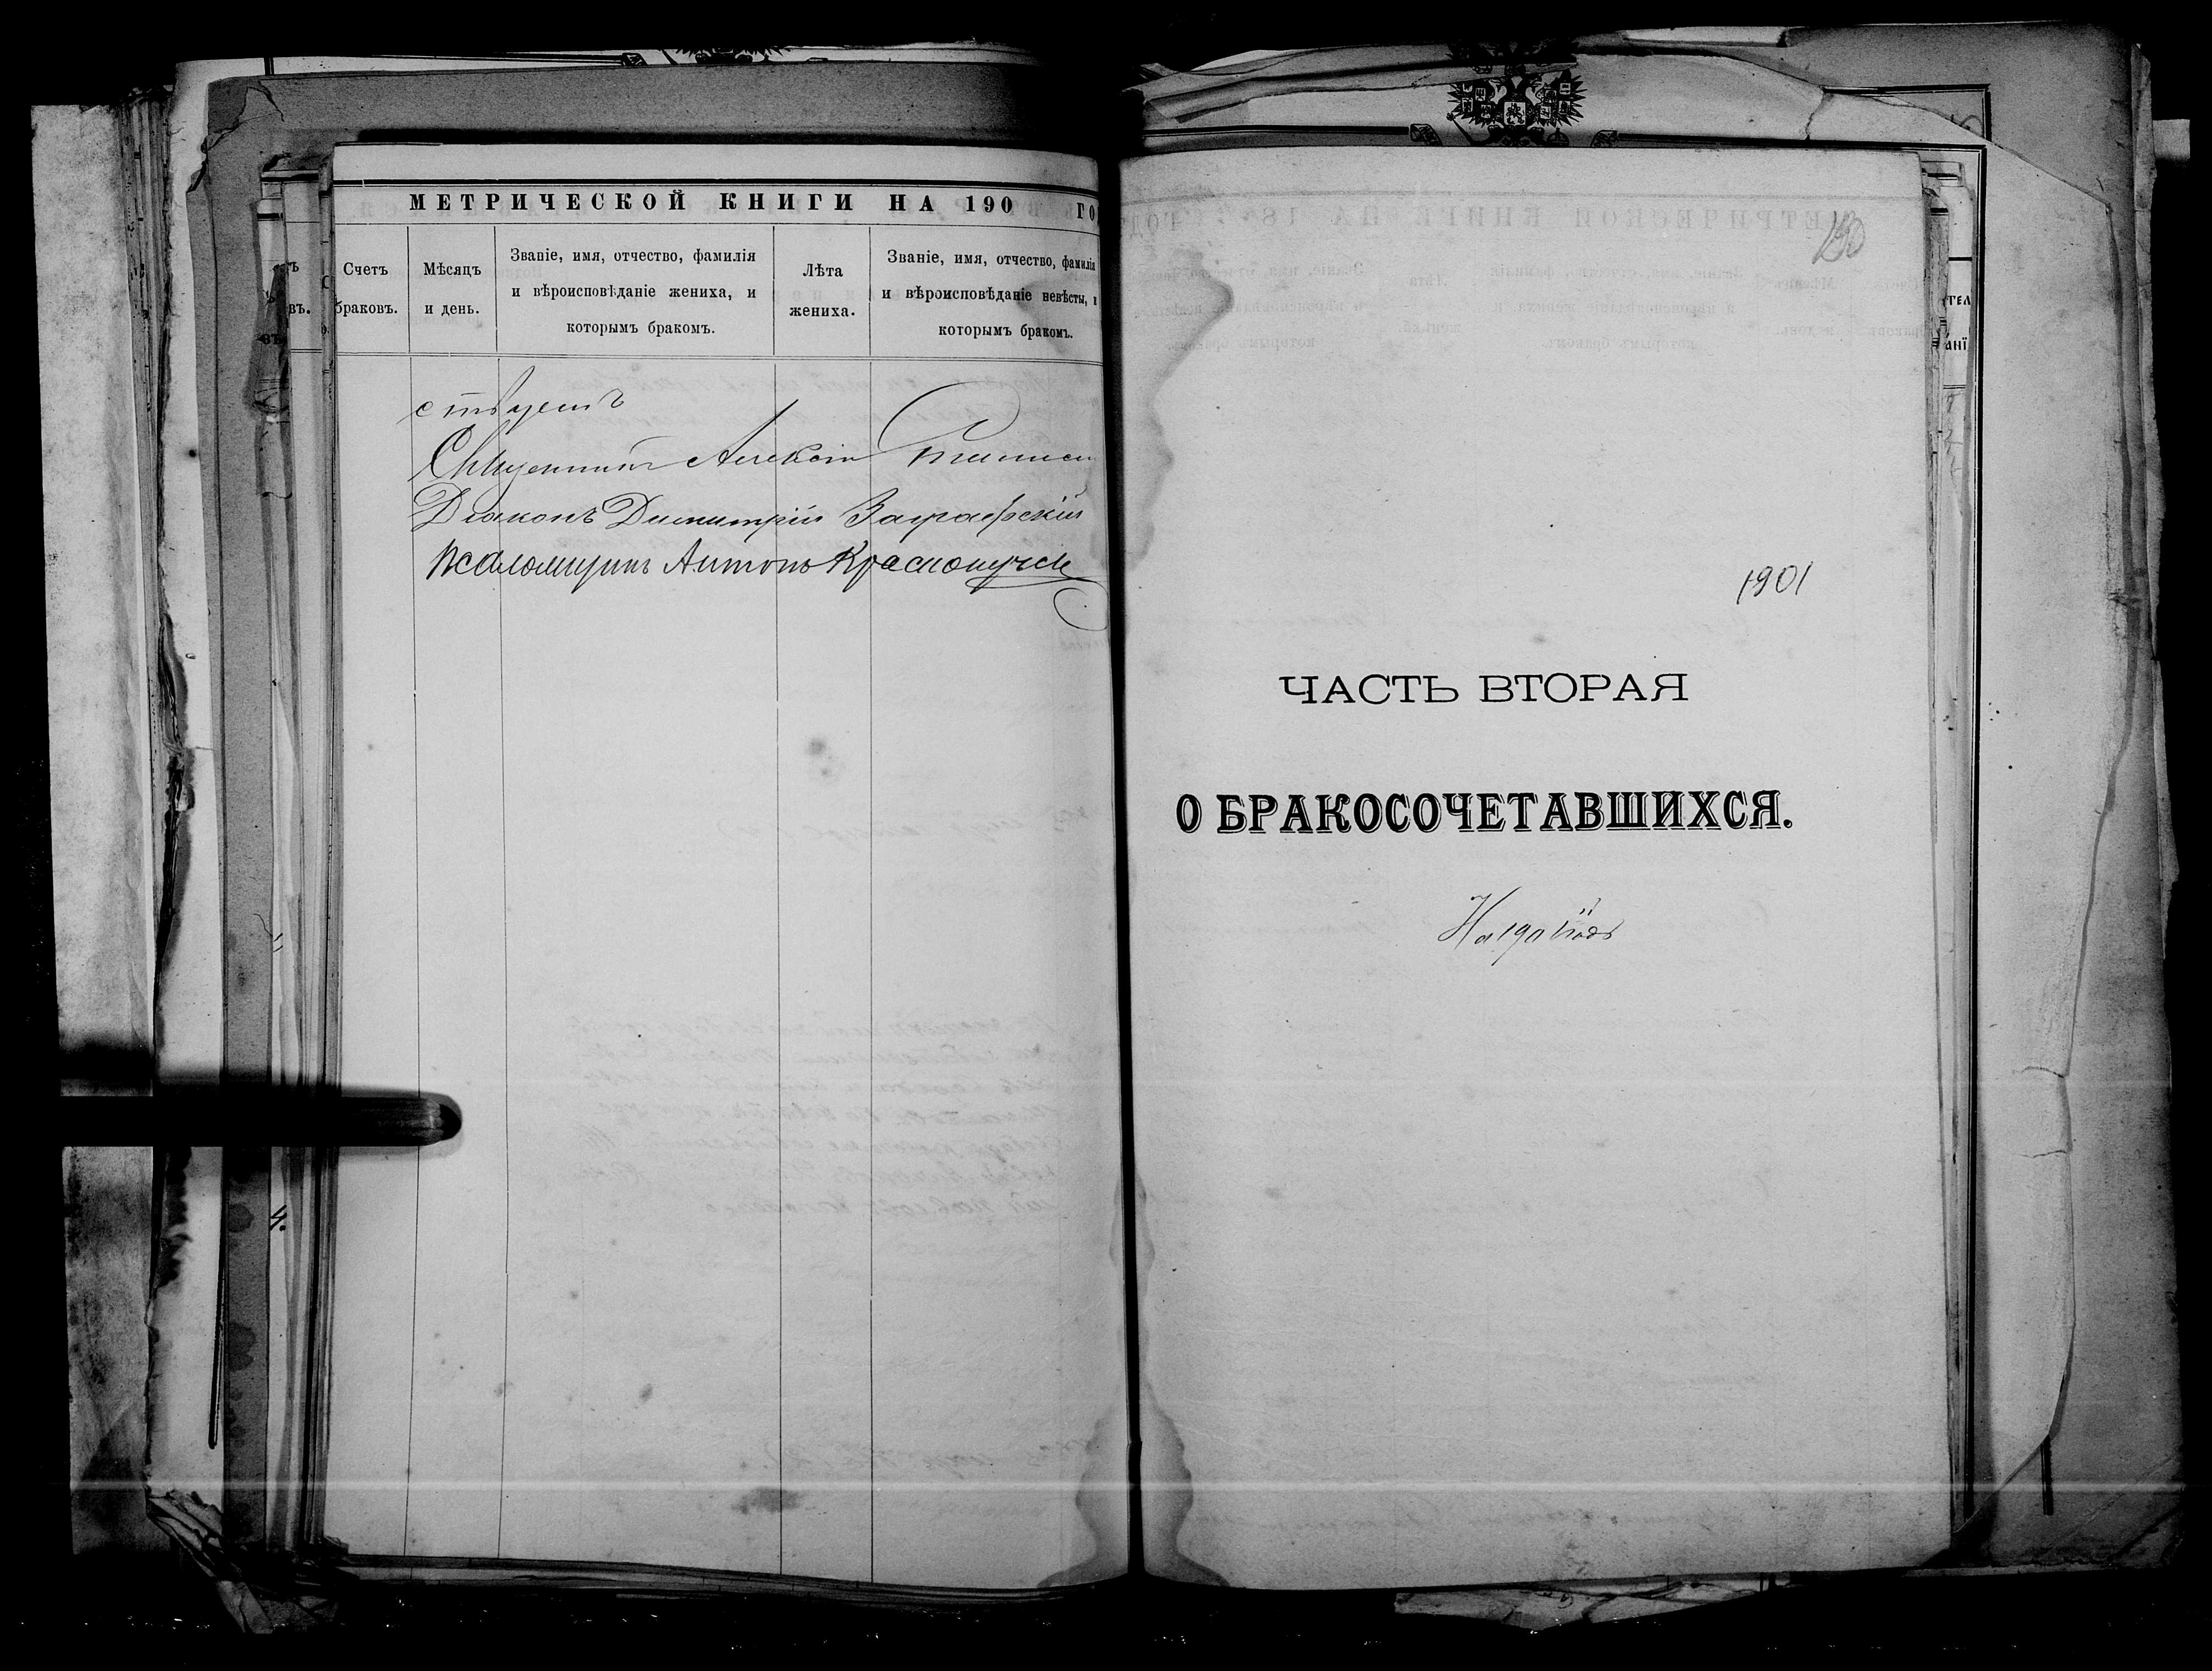 МЕТРИЧЕСКОЙ КНИГИ НА 190 ГО
Счетъ браковъ.
Мѣсяцъ и день.
Званіе, имя, отчество, фамилія
и вѣроисповѣданіе жениха, и
которымъ бракомъ.
Лѣта жениха.
Званіе, имя, отчество, фамилія
и вѣроисповѣданіе невѣсты, и
которымъ бракомъ.
ствуетъ
Священникъ Алексій
Діаконъ Димитрій
Псаломщикъ Антонъ
1901
ЧАСТЬ ВТОРАЯ
О БРАКОСОЧЕТАВШИХСЯ.
На 1901 годъ